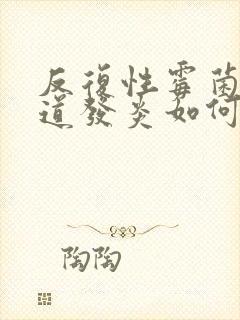 反復性霉菌
道發炎如何
陶陶